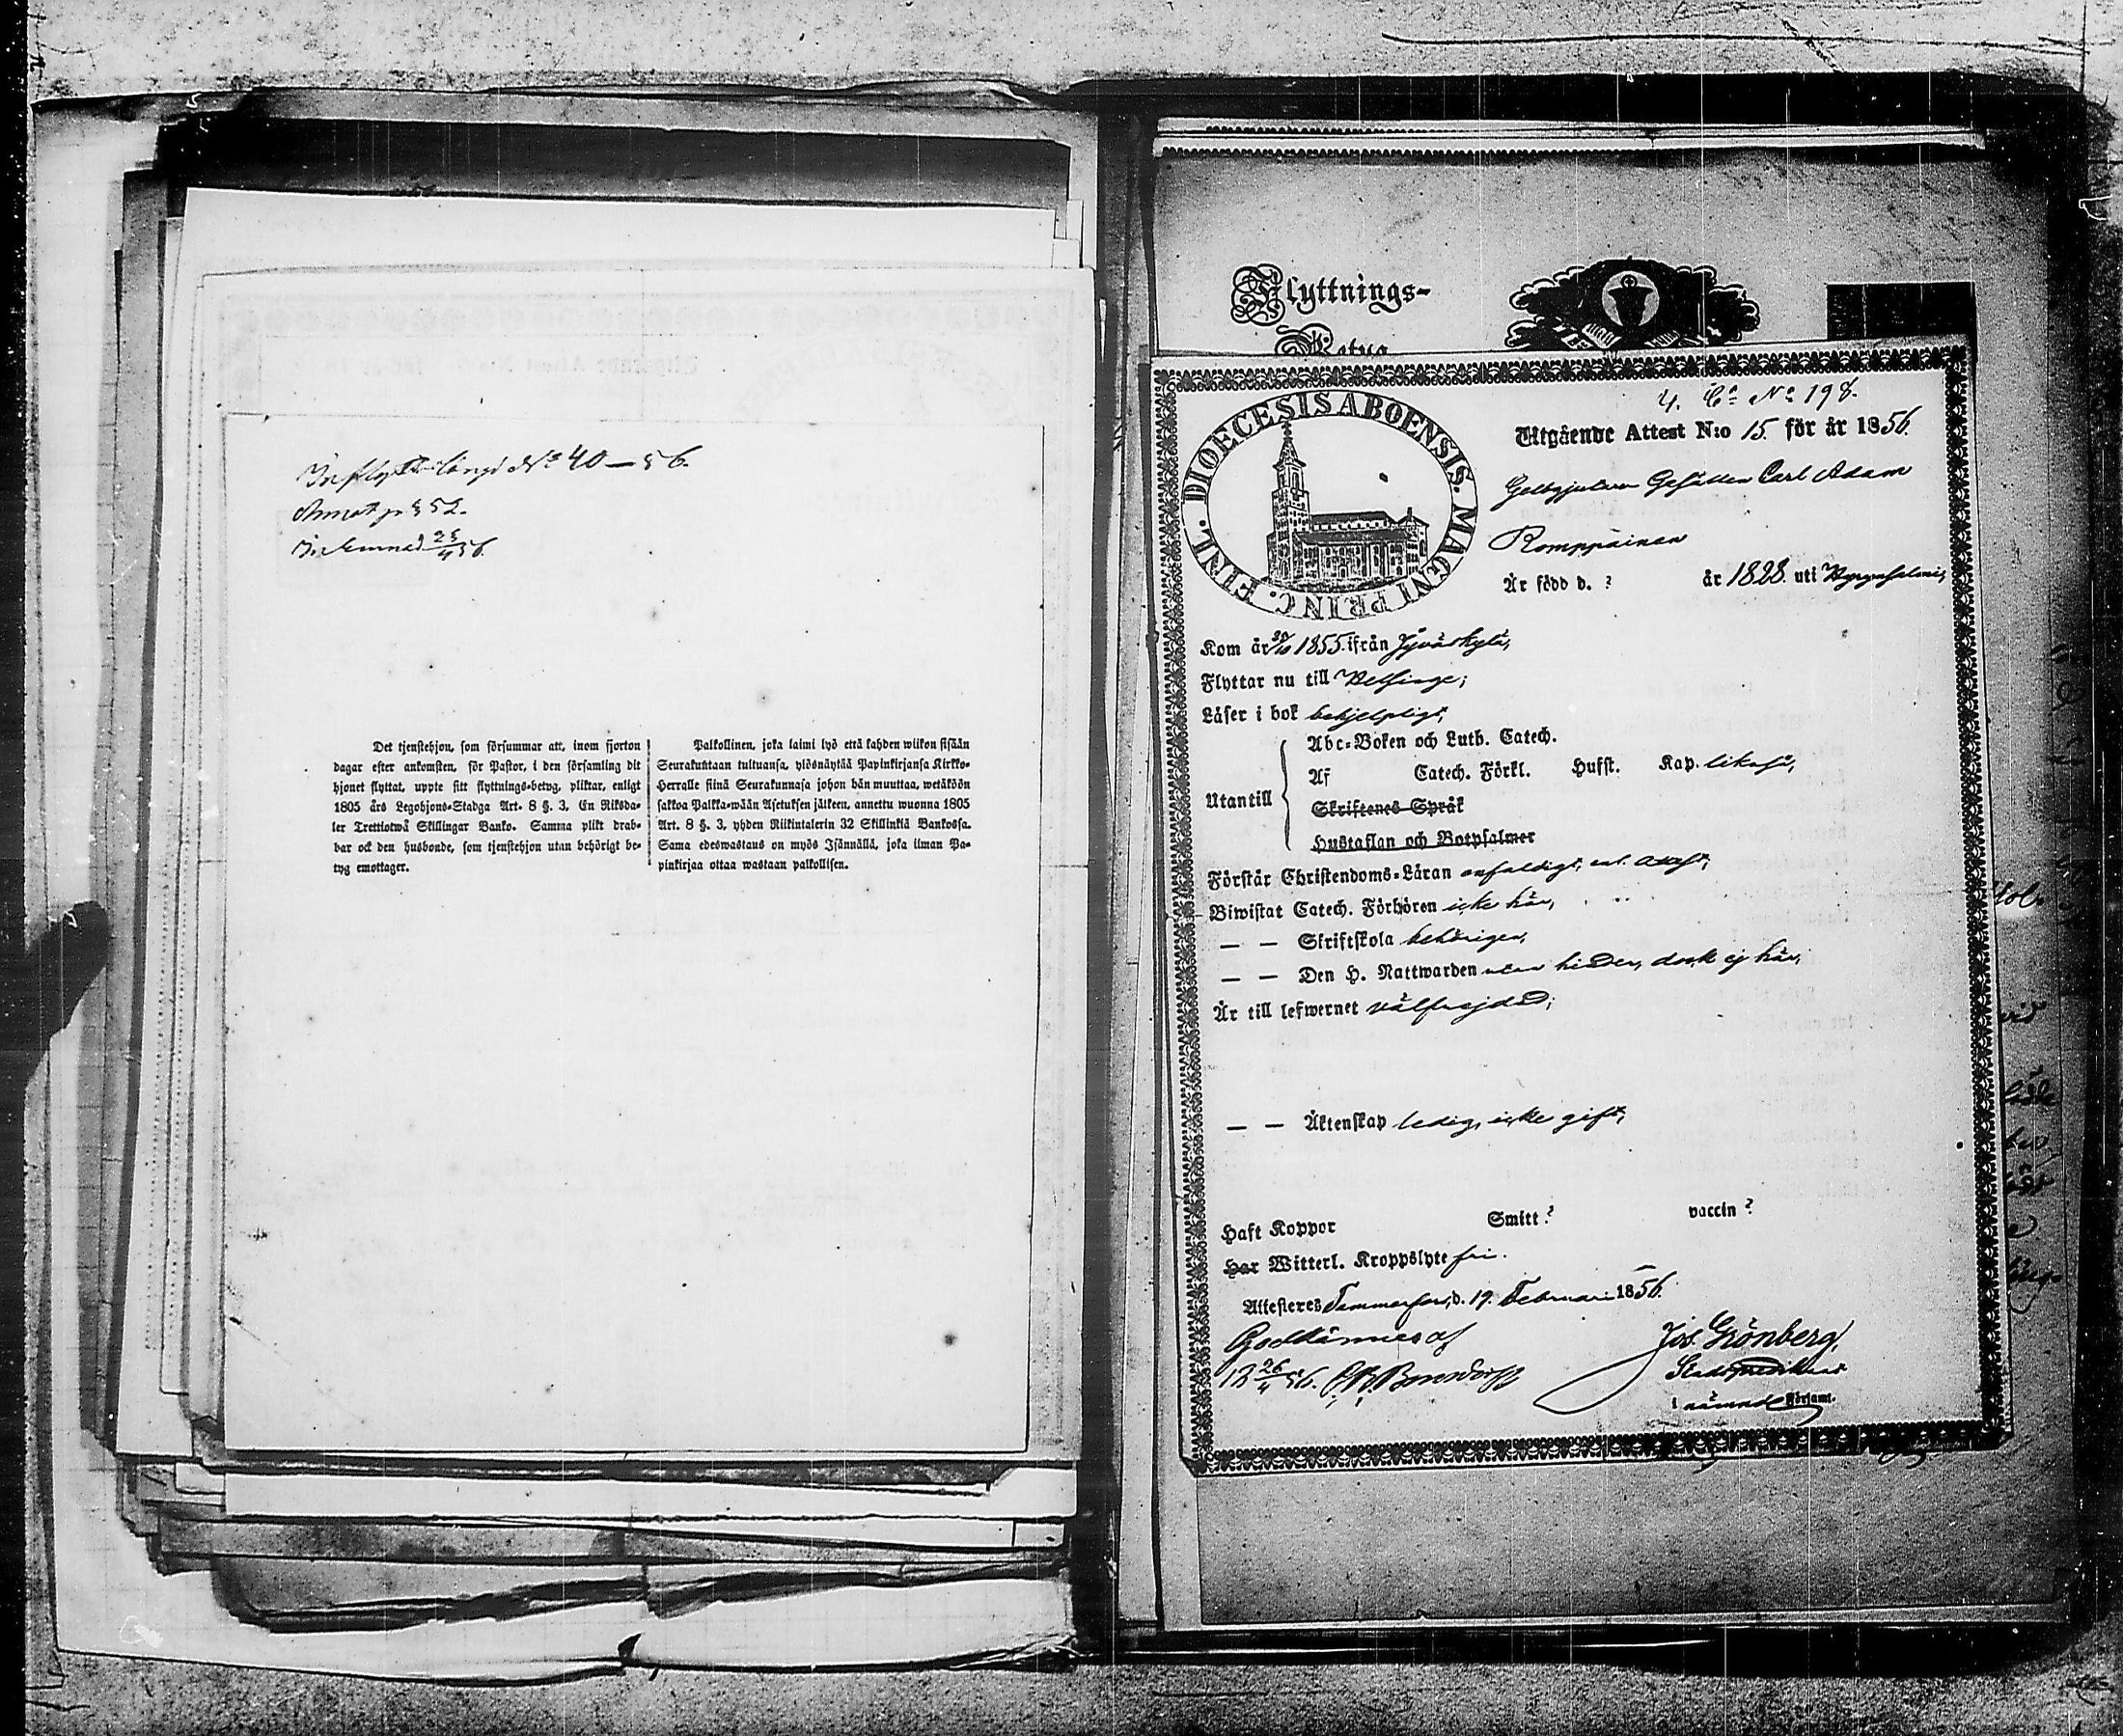 Inflyttn.längd No 40 — 56.
Annot. p. 852.
Inlemnad 25/4 56.
Det tjenstehjon, som försummar att, inom fjorton
dagar efter ankomsten, för Pastor, i den församling dit
hjonet flyttat, uppte sitt flyttnings-betyg, pliktar, enligt
1805 års Legohjons-Stadga Art. 8 §. 3, En Riksda-
ler Trettiotwå Skillingar Banko. Samma plikt drab-
bar ock den husbonde, som tjenstehjon utan behörigt be-
tyg emottager.
Palkollinen, joka laimi lyö että kahden wiikon sisään
Seurakuntaan tultuansa, ylösnäytää Papinkirjansa Kirkko-
Herralle siinä Seurakunnasa johon hän muuttaa, wetäköön
sakkoa Palkka-wään Asetuksen jälkeen, annettu wuonna 1805
Art. 8 §. 3, yhden Riikintalerin 32 Skillinkiä Bankossa.
Sama edeswastaus on myös Isännällä, joka ilman Pa-
pinkirjaa ottaa wastaan palkollisen.
Flyttnings-
Betyg
No 198.
DIOECESIS ABOENSIS. MAGNI PRINC. FINL.
Utgående Attest N:o 15. för år 1856.
Gelbgjutare Gesällen Carl Adam
Romppainen
Är född d. ? år 1828. uti Hyrynsalmi,
Kom år 30/10 1855. ifrån Jyväskylä,
Flyttar nu till Helsinge;
Läser i bok behjelpligt,
Utantill
Abc-Boken och Luth. Catech.
Af Catech. Förkl. Husst. Kap. likaså,
Skriftenes Språk
Hustaflan och Botpsalmer
Förstår Christendoms-Läran enfaldigt, enl. attest,
Biwistat Catech. Förhören icke här,
— — Skriftskola behörigen,
— — Den H. Nattwarden utan hinder, dock ej här,
Är till lefwernet välfrejdad;
— — Äktenskap ledig, icke gift,
Haft Koppor Smitt ? vaccin ?
Har Witterl. Kroppslyte fri.
Attesteras Tammerfors, d. 19. Februari 1856.
Godkännes af
Jos. Grönberg,
26/4 56.
Stadspredikant
i nämnde Församl.